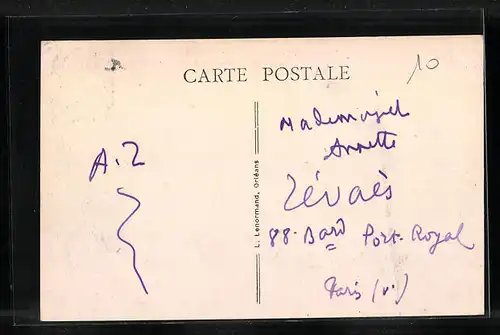 CARTE POSTALE
10
A. Z
L. Lenormand, Orléans
Mademoiselle
Annette
Zévaès
88. Bard Port-Royal
Paris (V.)